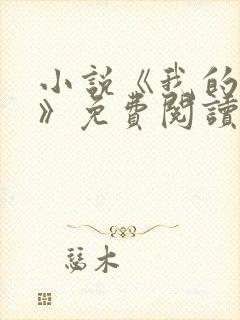 小說《我的
》免費閱讀
瑟木